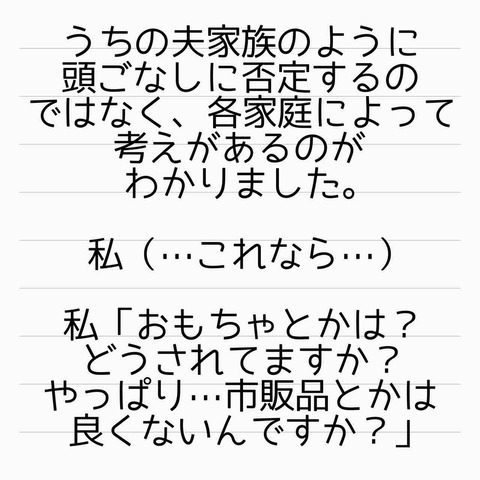 うちの夫家族のように
頭ごなしに否定するの
ではなく、各家庭によって
考えがあるのが
わかりました。
私（…これなら…）
私「おもちゃとかは？
どうされてますか？
やっぱり…市販品とかは
良くないんですか？」